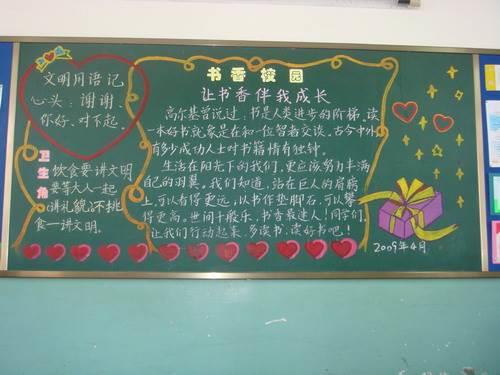 文明用语记
心头：谢谢、
你好、对不起。
卫生角
饮食要讲文明
要等大人一起
讲礼貌不挑
食一讲文明。
书香校园
让书香伴我成长
高尔基曾说过：书是人类进步的阶梯，读
一本好书就象是在和一位智者交谈。古今中外
有多少成功人士对书籍情有独钟。
生活在阳光下的我们，更应该努力丰满
自己的羽翼。我们知道，站在巨人的肩膀
上，可以看得更远，以书作垫脚石，可以攀
得更高。世间十般乐，书香最迷人！同学们，
让我们行动起来，多读书、读好书吧！
2009年4月